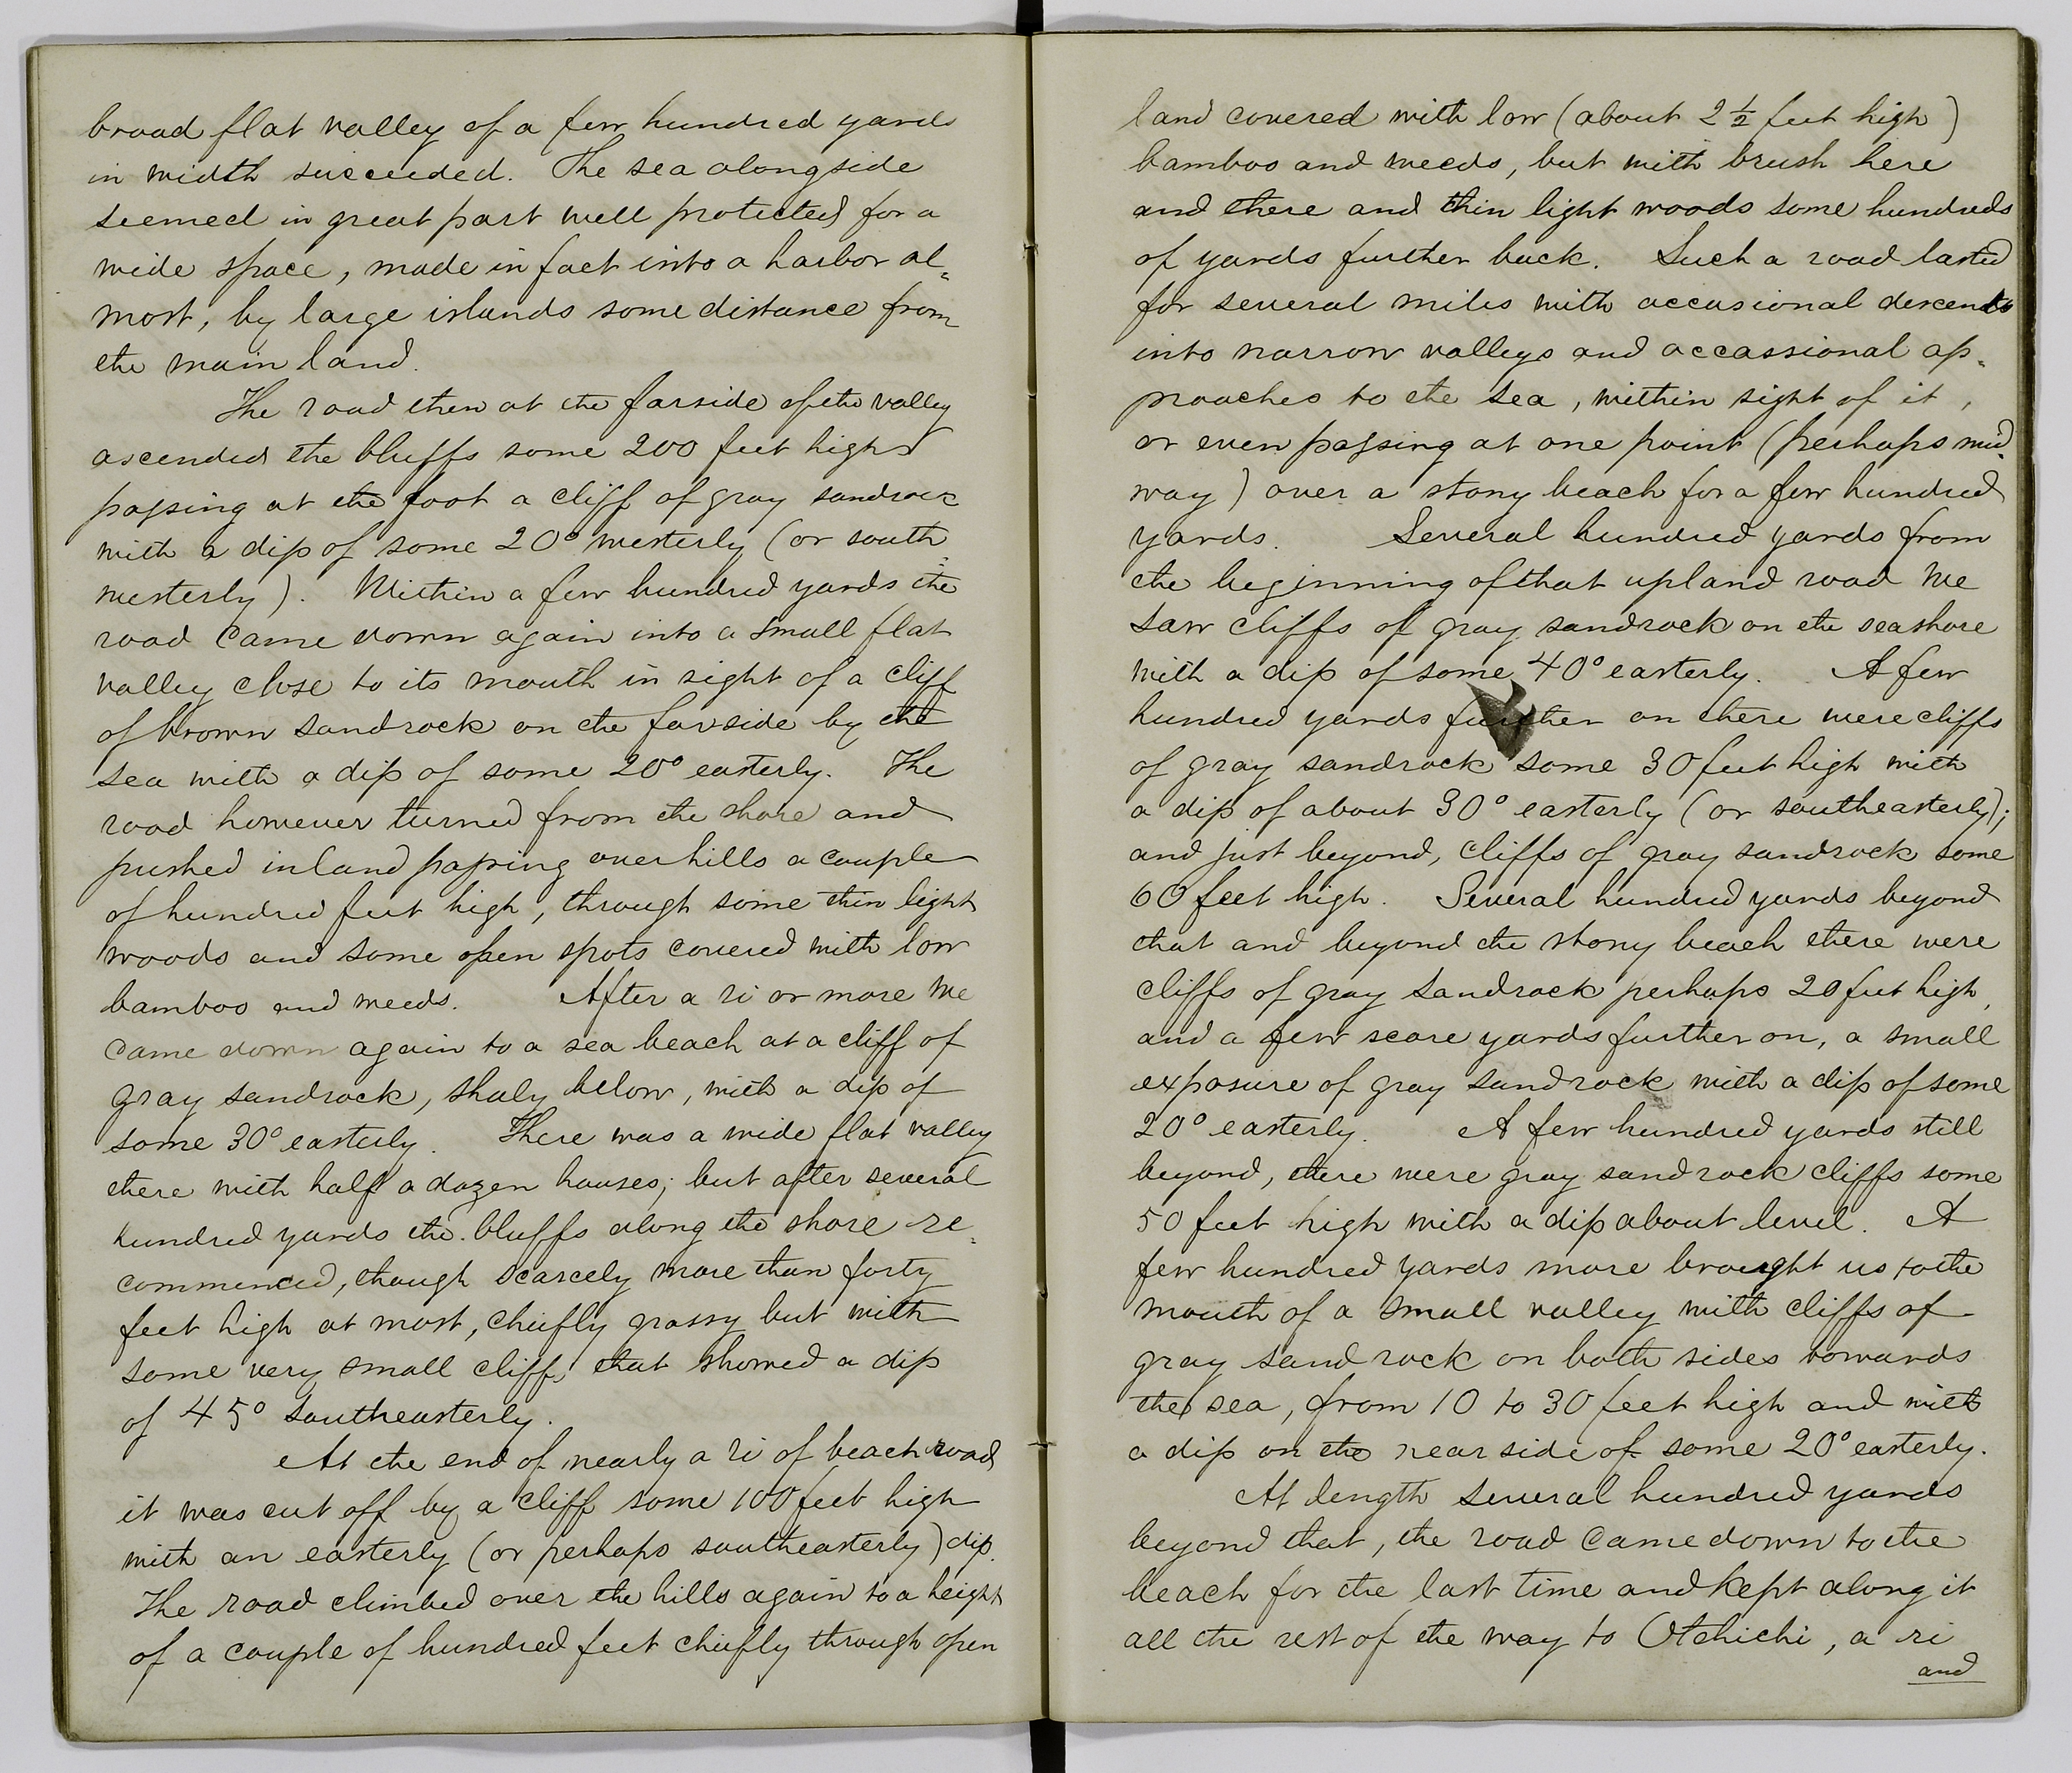 broad flat valley of a few hundred yards
in width succeeded. The sea alongside
seemed in great part well protected for a
wide space, made in fact into a harbor al-
most, by large islands some distance from
the main land.
The road then at the farside of the valley
ascended the bluffs some 200 feet high
passing at the foot a cliff of gray sandrock
with a dip of some 20° westerly (or south
westerly). Within a few hundred yards the
road came down again into a small flat
valley close to its mouth in sight of a cliff
of brown sandrock on the farside by the
sea with a dip of some 20° easterly. The
road however turned from the shore and
pushed inland passing over hills a couple
of hundred feet high, through some thin light
woods and some open spots covered with low
bamboo and weeds. After a ri or more we
came down again to a sea beach at a cliff of
gray sandrock, shaly below, with a dip of
some 30° easterly. There was a wide flat valley
there with half a dozen houses; but after several
hundred yards the bluffs along the shore re-
commenced, though scarcely more than forty
feet high at most, chiefly grassy but with
some very small cliffs that showed a dip
of 45° southeasterly.
At the end of nearly a ri of beach road
it was cut off by a cliff some 100 feet high
with an easterly (or perhaps southeasterly) dip.
The road climbed over the hills again to a height
of a couple of hundred feet chiefly through open
land covered with low (about 2 1/2 feet high)
bamboo and weeds, but with brush here
and there and thin light woods some hundreds
of yards further back. Such a road lasted
for several miles with occasional descents
into narrow valleys and occassional ap-
proaches to the sea, within sight of it,
or even passing at one point (perhaps mid-
way) over a stony beach for a few hundred
yards. Several hundred yards from
the beginning of that upland road we
saw cliffs of gray sandrock on the seashore
with a dip of some 40° easterly. A few
hundred yards further on there were cliffs
of gray sandrock some 30 feet high with
a dip of about 30° easterly (or southeasterly);
and just beyond, cliffs of gray sandrock some
60 feet high. Several hundred yards beyond
that and beyond the stony beach there were
cliffs of gray sandrock perhaps 20 feet high,
and a few score yards further on, a small
exposure of gray sandrock with a dip of some
20° easterly. A few hundred yards still
beyond, there were gray sandrock cliffs some
50 feet high with a dip about level. A
few hundred yards more brought us to the
mouth of a small valley with cliffs of
gray sandrock on both sides towards
the sea, from 10 to 30 feet high and with
a dip on the near side of some 20° easterly.
At length several hundred yards
beyond that, the road came down to the
beach for the last time and kept along it
all the rest of the way to Otchichi, a ri
and